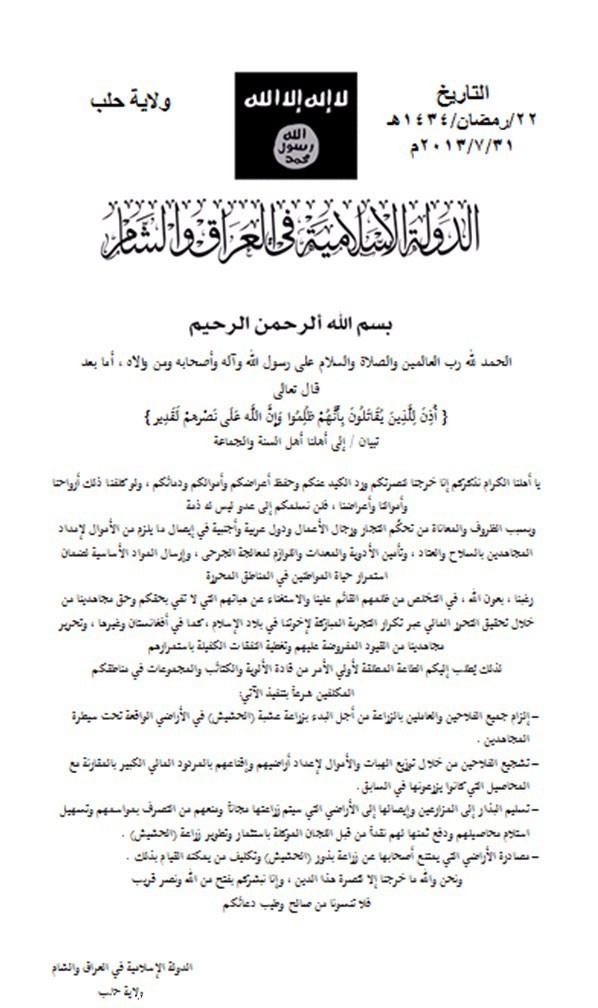 التاريخ
٢٢/رمضان/١٤٣٤هـ
٢٠١٣/٧/٣١م
لا إله إلا الله
الله
رسول
محمد
ولاية حلب
الدولة الإسلامية في العراق والشام
بسم الله ألرحمن الرحيم
الحمد لله رب العالمين والصلاة والسلام على رسول الله وآله وأصحابه ومن والاه ، أما بعد
قال تعالى
{ أُذِنَ لِلَّذِينَ يُقَاتَلُونَ بِأَنَّهُمْ ظُلِمُوا وَإِنَّ اللَّه عَلَى نَصْرهمْ لَقَدِير }
تبيان / إلى أهلنا أهل السنة والجماعة
يا أهلنا الكرام نذكركم إنا خرجنا لنصرتكم ورد الكيد عنكم وحفظ أعراضكم وأموالكم ودمائكم ، ولو كلفنا ذلك أرواحنا
وأموالنا وأعراضنا ، فلن نسلمكم إلى عدو ليس له ذمة
وبسبب الظروف والمعاناة من تحكّم التجار ورجال الأعمال ودول عربية وأجنبية في إيصال ما يلزم من الأموال لإمداد
المجاهدين بالسلاح والعتاد ، وتأمين الأدوية والمعدات واللوازم لمعالجة الجرحى ، وإرسال المواد الأساسية لضمان
استمرار حياة المواطنين في المناطق المحررة
رغبنا ، بعون الله ، في التخلص من ظلمهم القائم علينا والاستغناء عن هباتهم التي لا تفي بحقكم وحق مجاهدينا من
خلال تحقيق التحرر المالي عبر تكرار التجربة المباركة لإخوتنا في بلاد الإسلام ، كما في أفغانستان وغيرها ، وتحرير
مجاهدينا من القيود المفروضة عليهم وتغطية النفقات الكفيلة باستمرارهم
لذلك يُطلب إليكم الطاعة المطلقة لأولي الأمر من قادة الألوية والكتائب والمجموعات في مناطقكم
المكلفين شرعاً بتنفيذ الآتي:
- إلزام جميع الفلاحين والعاملين بالزراعة من أجل البدء بزراعة عشبة (الحشيش) في الأراضي الواقعة تحت سيطرة
المجاهدين .
- تشجيع الفلاحين من خلال توزيع الهبات والأموال لإعداد أراضيهم وإقناعهم بالمردود المالي الكبير بالمقارنة مع
المحاصيل التي كانوا يزرعونها في السابق .
- تسليم البذار إلى المزارعين وإيصالها إلى الأراضي التي سيتم زراعتها مجاناً ومنعهم من التصرف بمواسمهم وتسهيل
استلام محاصيلهم ودفع ثمنها لهم نقداً من قبل اللجان الموكلة باستثمار وتطوير زراعة (الحشيش) .
- مصادرة الأراضي التي يمتنع أصحابها عن زراعة بذور (الحشيش) وتكليف من يمكنه القيام بذلك .
ونحن والله ما خرجنا إلا لنصرة هذا الدين ، وإنا نبشركم بفتح من الله ونصر قريب
فلا تنسونا من صالح وطيب دعائكم
الدولة الإسلامية في العراق والشام
ولاية حلب